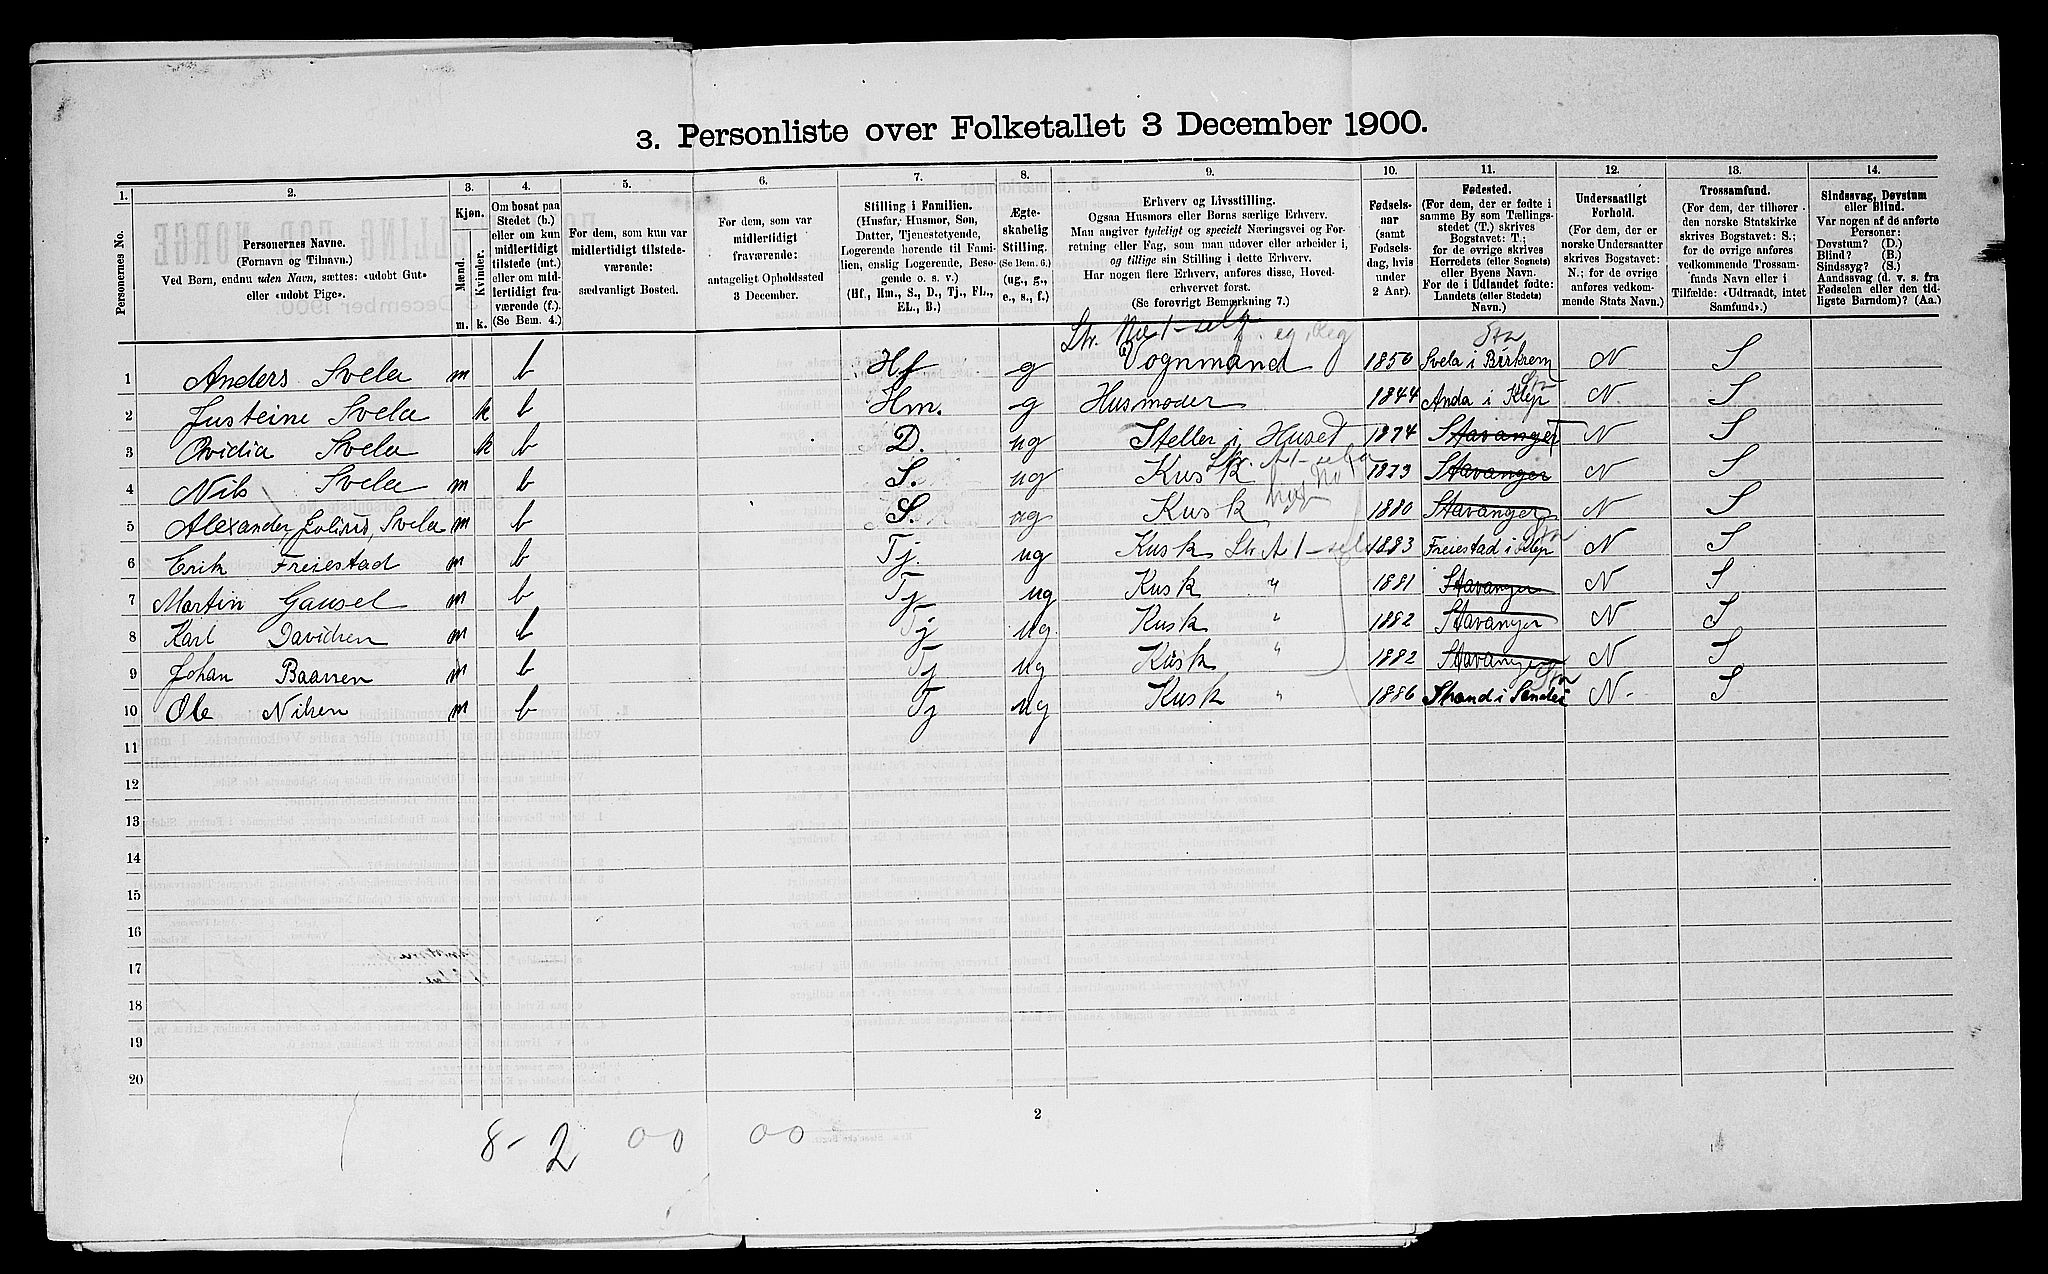 3. Personliste over Folketallet 3 December 1900.
1. 2. 3. 4. 5. 6. 7. 8. 9. 10. 11. 12. 13. 14.
Personernes No.
Personernes Navne.
(Fornavn og Tilnavn.)
Ved Børn, endnu uden Navn, sættes: «udobt Gut»
eller «udobt Pige».
Kjøn.
Mænd. Kvinder.
m. k.
Om bosat paa
Stedet (b.)
eller om kun
midlertidigt
tilstede (mt.)
eller om mid-
lertidigt fra-
værende (f.).
(Se Bem. 4.)
For dem, som kun var
midlertidigt tilstede-
værende:
sædvanligt Bosted.
For dem, som var
midlertidigt
fraværende:
antageligt Opholdssted
3 December.
Stilling i Familien.
(Husfar, Husmor, Søn,
Datter, Tjenestetyende,
Logerende hørende til Fami-
lien, enslig Logerende, Besø-
gende o. s. v.)
(Hf., Hm., S., D., Tj., FL.,
EL., B.)
Ægte-
skabelig
Stilling.
(Se Bem. 6.)
(ug., g.,
e., s., f.)
Erhverv og Livsstilling.
Ogsaa Husmors eller Børns særlige Erhverv.
Man angiver tydeligt og specielt Næringsvei og For-
retning eller Fag, som man udøver eller arbeider i,
og tillige sin Stilling i dette Erhverv.
Har nogen flere Erhverv, anføres disse, Hoved-
erhvervet først.
(Se forøvrigt Bemerkning 7.)
Fødsels-
aar
(samt
Fødsels-
dag, hvis
under
2 Aar).
Fødested.
(For dem, der er fødte i
samme By som Tællings-
stedet (T.) skrives
Bogstavet: T.;
for de øvrige skrives
Herredets (eller Sognets)
eller Byens Navn.
For de i Udlandet fødte:
Landets (eller Stedets)
Navn.)
Undersaatligt
Forhold.
(For dem, der er
norske Undersaatter
skrives Bogstavet:
N.; for de øvrige
anføres vedkom-
mende Stats Navn.)
Trossamfund.
(For dem, der tilhører
den norske Statskirke
skrives Bogstavet: S.;
for de øvrige anføres
vedkommende Trossam-
funds Navn eller i
Tilfælde: «Udtraadt, intet
Samfund».)
Sindssvag, Døvstum
eller Blind.
Var nogen af de anførte
Personer:
Døvstum? (D.)
Blind? (B.)
Sindssyg? (S.)
Aandssvag (d. v. s. fra
Fødselen eller den tid-
ligste Barndom)? (Aa.)
1 Anders Svela m b Hf g Vognmand 1850 Svela i Birkrem N S
2 Justeine Svela k b Hm. g Husmoder 1844 Anda i Klep N. S
3 Ovidia Svela k b D. ug Steller i Huset 1874 Stavanger T N S
4 Nils Svela m b S. ug Kusk 1873 Stavanger N S
5 Alexander, Jolius, Svela m b S. ug Kusk 1880 Stavanger N S
6 Erik Freiestad m b Tj. ug Kusk 1883 Freiestad i Klep N S
7 Martin Gausel m b Tj ug Kusk " 1881 Stavanger N S
8 Karl Davidsen m b Tj ug. Kusk " 1882 Stavanger N S
9 Johan Baarsen m b Tj ug Kusk " 1882 Stavanger N S
10 Ole Nilsen m b Tj ug Kusk " 1886 Strand i N. S
11
12
13
14
15
16
17
18
19
20
2
8 - 2 00 00